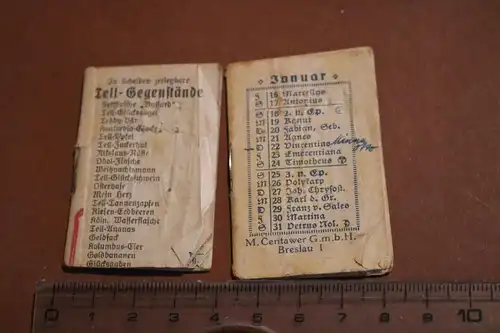 In Scheiben zerlegbare
Tell-Gegenstände
Tell-Glückspilze
Teddy-Bär
Tell-Apfel
Tell-Zuckerhut
Nikolaus-Nüsse
Obst-Zinsche
Weihnachtsmann
Tell-Glücksschwein
Osterhase
Mein Herz
Tell-Tannenzapfen
Riesen-Erdbeeren
Köln. Wasserflasche
Tell-Ananas
Geldsack
Kolumbus-Eier
Goldbananen
Glücksgaben
Januar
F 16 Marcellus
S 17 Antonius
S 18 2. n. Ep.
M 19 Kanut
D 20 Fabian, Seb.
M 21 Agnes
D 22 Vincentius
F 23 Emerentiana
S 24 Timotheus
S 25 3. n. Ep.
M 26 Polykarp
D 27 Joh. Chrysost.
M 28 Karl d. Gr.
D 29 Franz v. Sales
F 30 Martina
S 31 Petrus Nol.
M. Centawer G.m.b.H.
Breslau 1
0 1 2 3 4 5 6 7 8 9 10